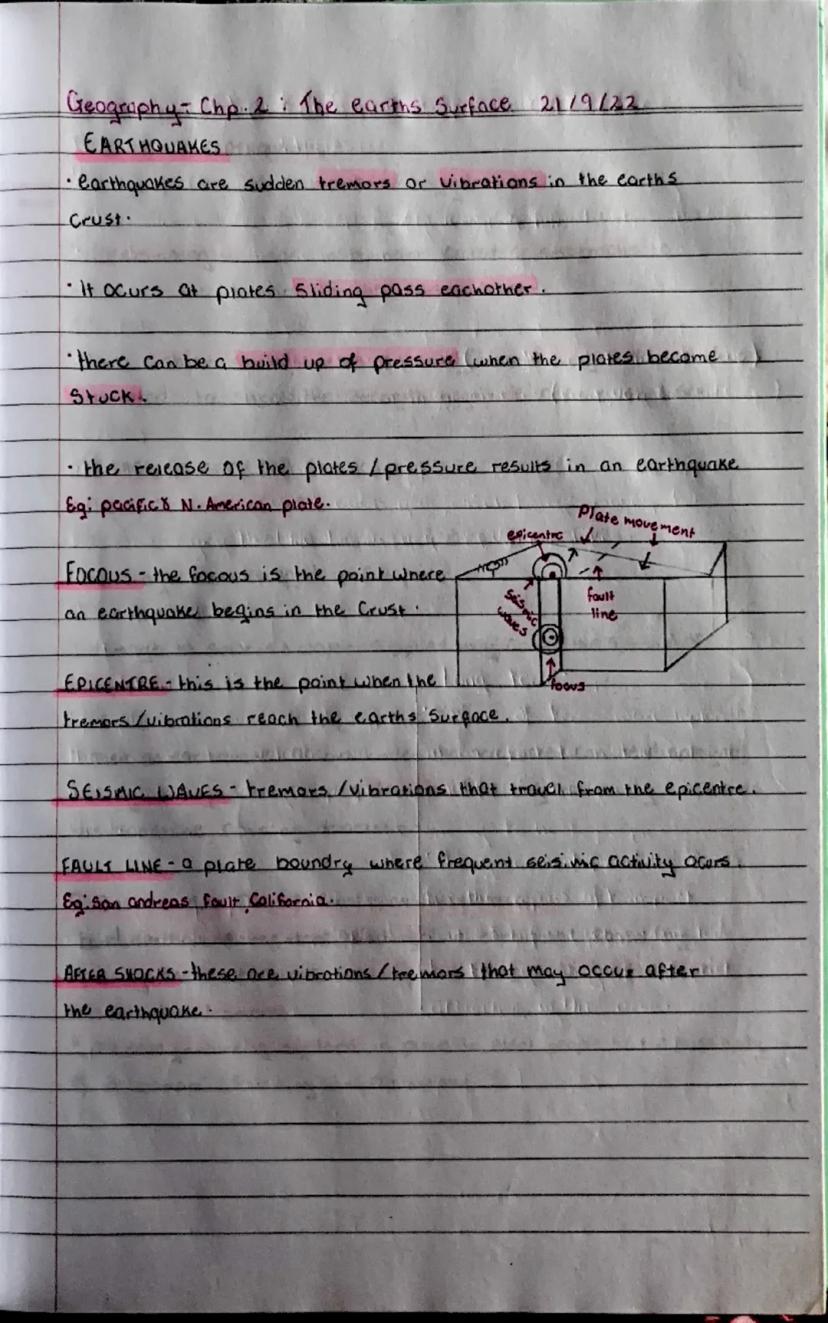 Geography - Chp. 2 : The earths Surface 21/9/22
EARTHQUAKES
· earthquakes are sudden tremors or vibrations in the earths
crust.
· It ocurs at plates sliding pass eachother.
· there can be a build up of pressure when the plates become
stuck.
· the release of the plates / pressure results in an earthquake
Eg: pacific & N. American plate.
Plate movement
epicentre
FOCOUS - the focous is the point where
seismic waves
fault
line
an earthquake begins in the crust.
focus
EPICENTRE - this is the point when the
tremors/vibrations reach the earths surface.
SEISMIC WAVES - tremors /vibrations that travel from the epicentre.
FAULT LINE - a plate boundry where frequent seismic activity ocurs.
Eg: San andreas fault, California.
AFTER SHOCKS - these are vibrations/tremors that may occur after
the earthquake.